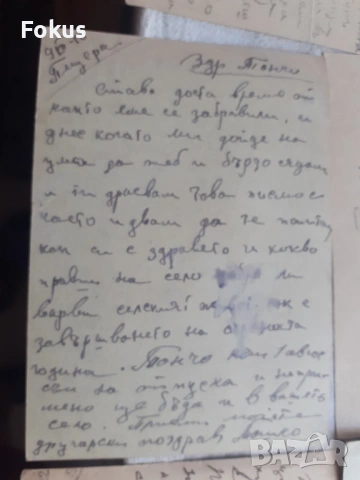 Fokus
Здр Тончо
Става доста време от
както сме се забравили, и
днес когато ми дойде на
ума за теб и бързо сядам
и ти драсвам това писмо с
което идвам да те питам
как си с здравето и какво
правиш на село ли
върви селският как е
завършването на
година. Тончо към 1 август
съм на отпуска и
мено ще бъда и в вашето
село. Приеми моите
другарски поздрав
bazar.bg